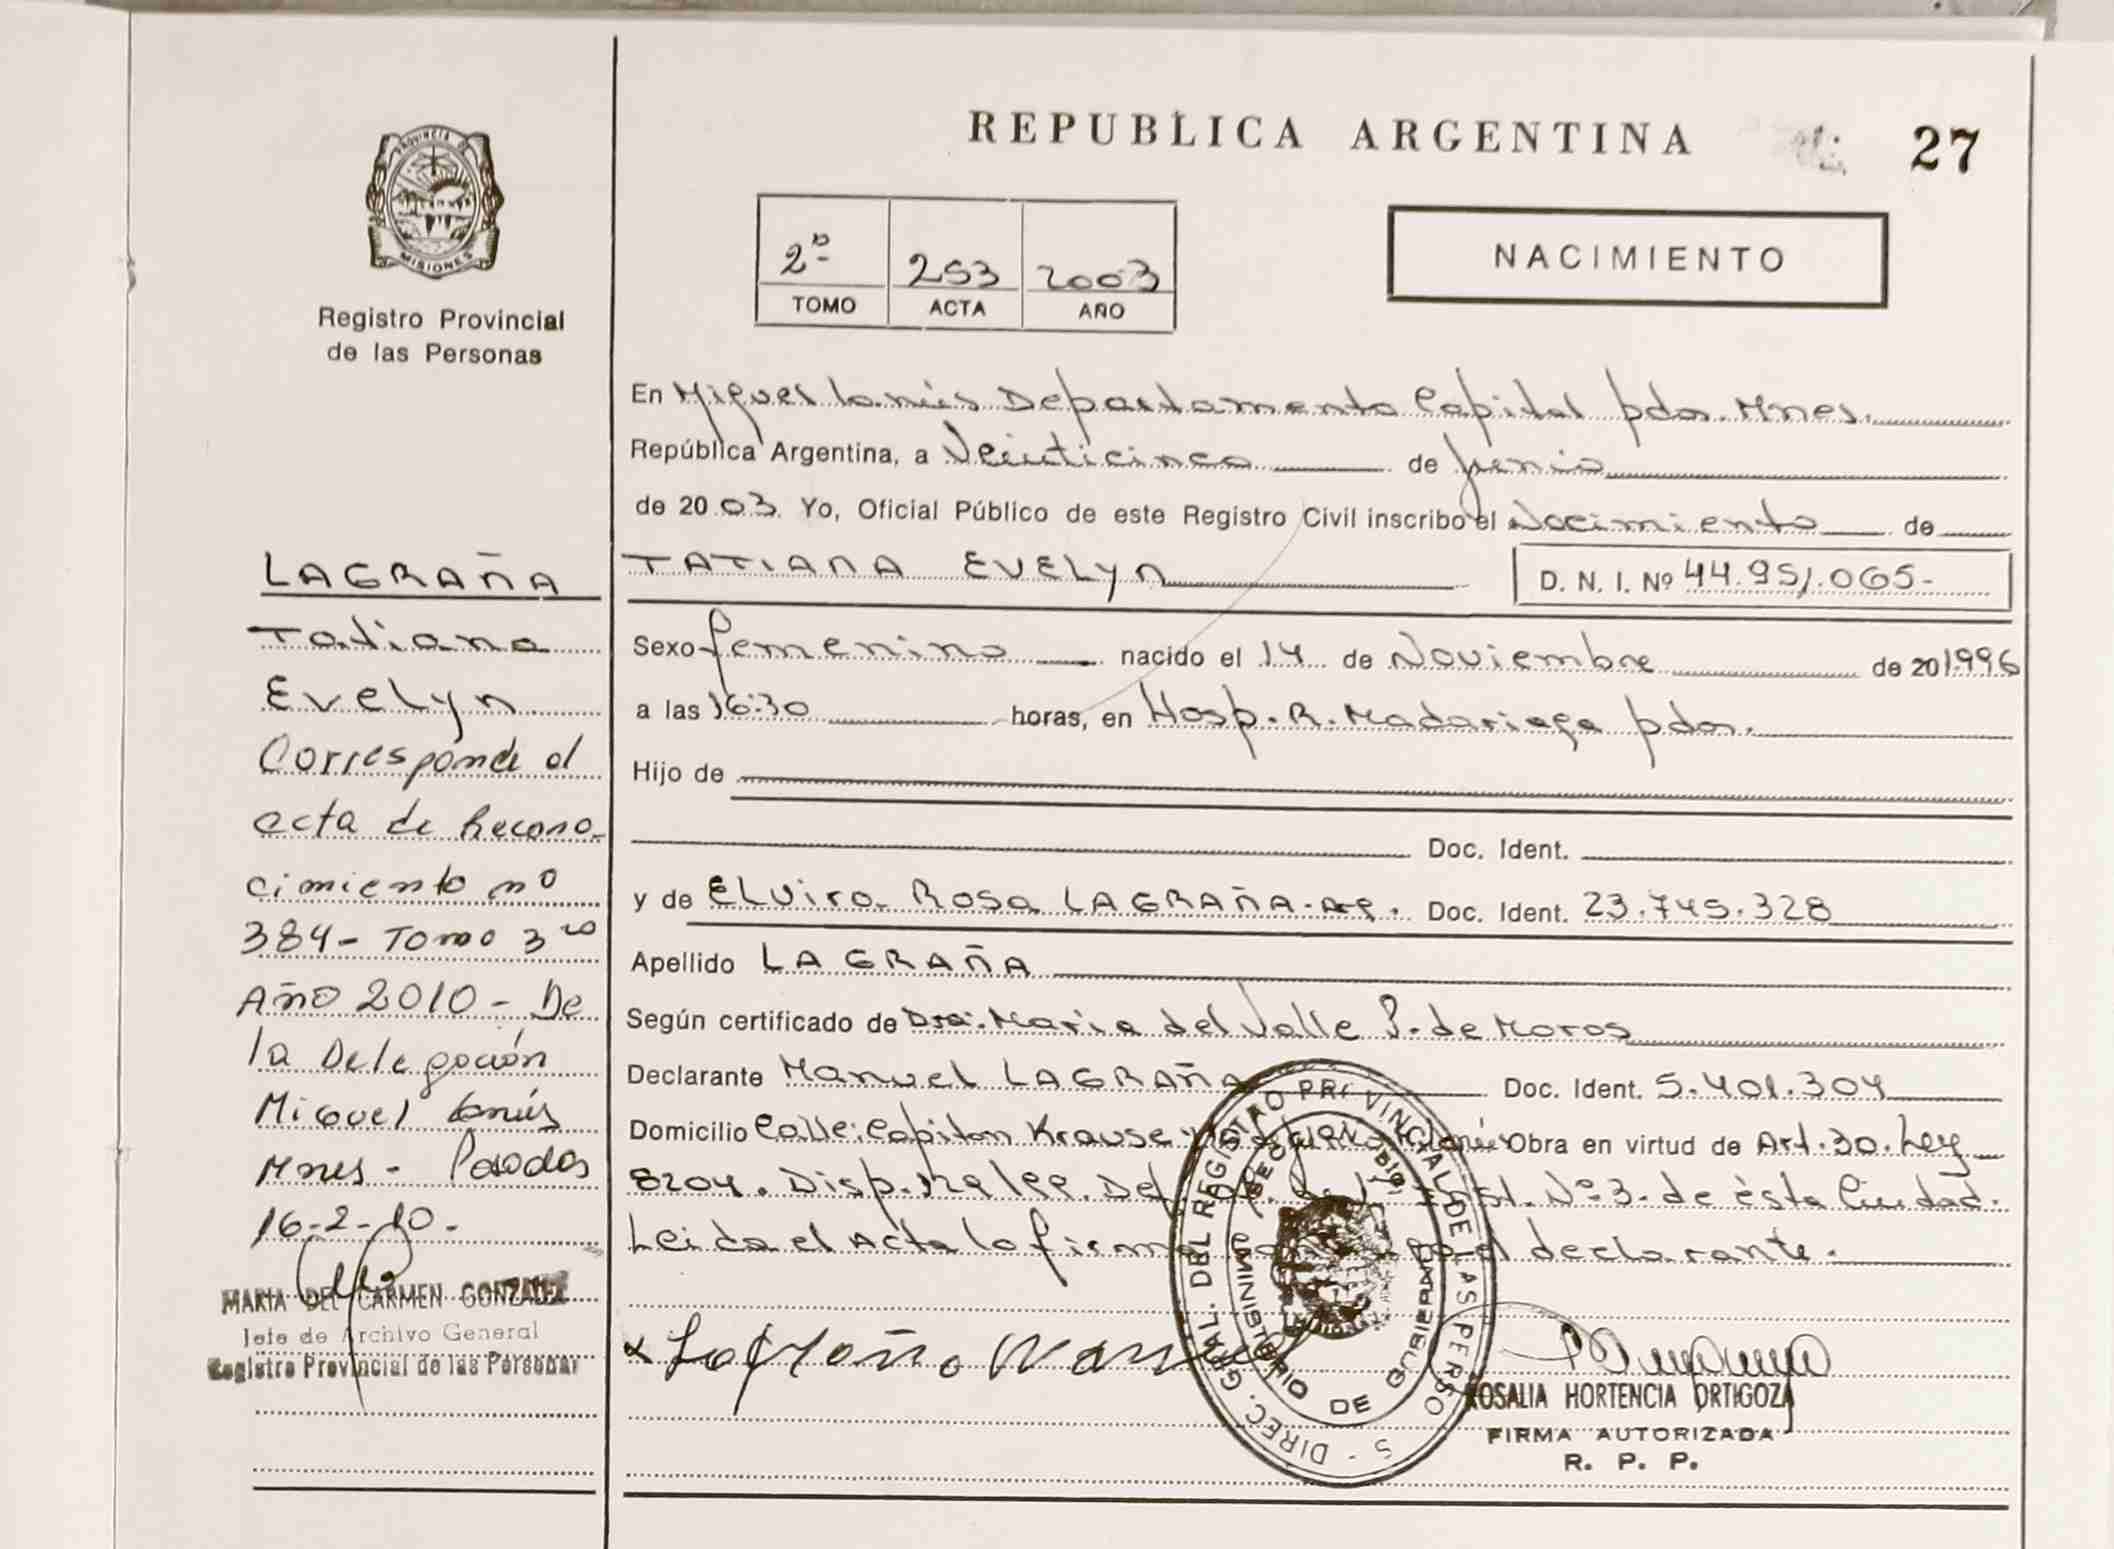 REPUBLICA ARGENTINA
27
PROVINCIA DE
MISIONES
Registro Provincial
de las Personas
2º TOMO
253 ACTA
2003 AÑO
NACIMIENTO
En Miguel Lanús Departamento Capital pdas. Mnes.
República Argentina, a Veinticinco de junio
de 2003. Yo, Oficial Público de este Registro Civil inscribo el Nacimiento de
TATIANA EVELYN
D. N. I. Nº 44.951.065-
Sexo femenino nacido el 14 de Noviembre de 201996
a las 16:30 horas, en Hosp. R. Madariaga pdas.
Hijo de
Doc. Ident.
y de ELvira Rosa LAGRAÑA-Ar. Doc. Ident. 23.745.328
Apellido LAGRAÑA
Según certificado de Dra. Maria del Valle P. de Moros
Declarante Manuel LAGRAÑA Doc. Ident. 5.401.304
Domicilio Calle: Capitan Krause Lanús Obra en virtud de Art. 30. Ley
8204. Disp. Nº3. de ésta Ciudad.
Leida el Acta la firma el declarante.
LAGRAÑA
Tatiana
Evelyn
Corresponde al
acta de Recono-
cimiento nº
384- Tomo 3ro
Año 2010 - De
la Delegación
Miguel Lanús
Mnes - Posadas
16-2-10-
MARIA DEL CARMEN GONZALEZ
Jefe de Archivo General
Registro Provincial de las Personas
x Lagraña Manuel
DIREC. GRAL. DEL REGISTRO PROVINCIAL DE LAS PERSONAS
MINISTERIO DE GOBIERNO
ROSALIA HORTENCIA ORTIGOZA
FIRMA AUTORIZADA
R. P. P.